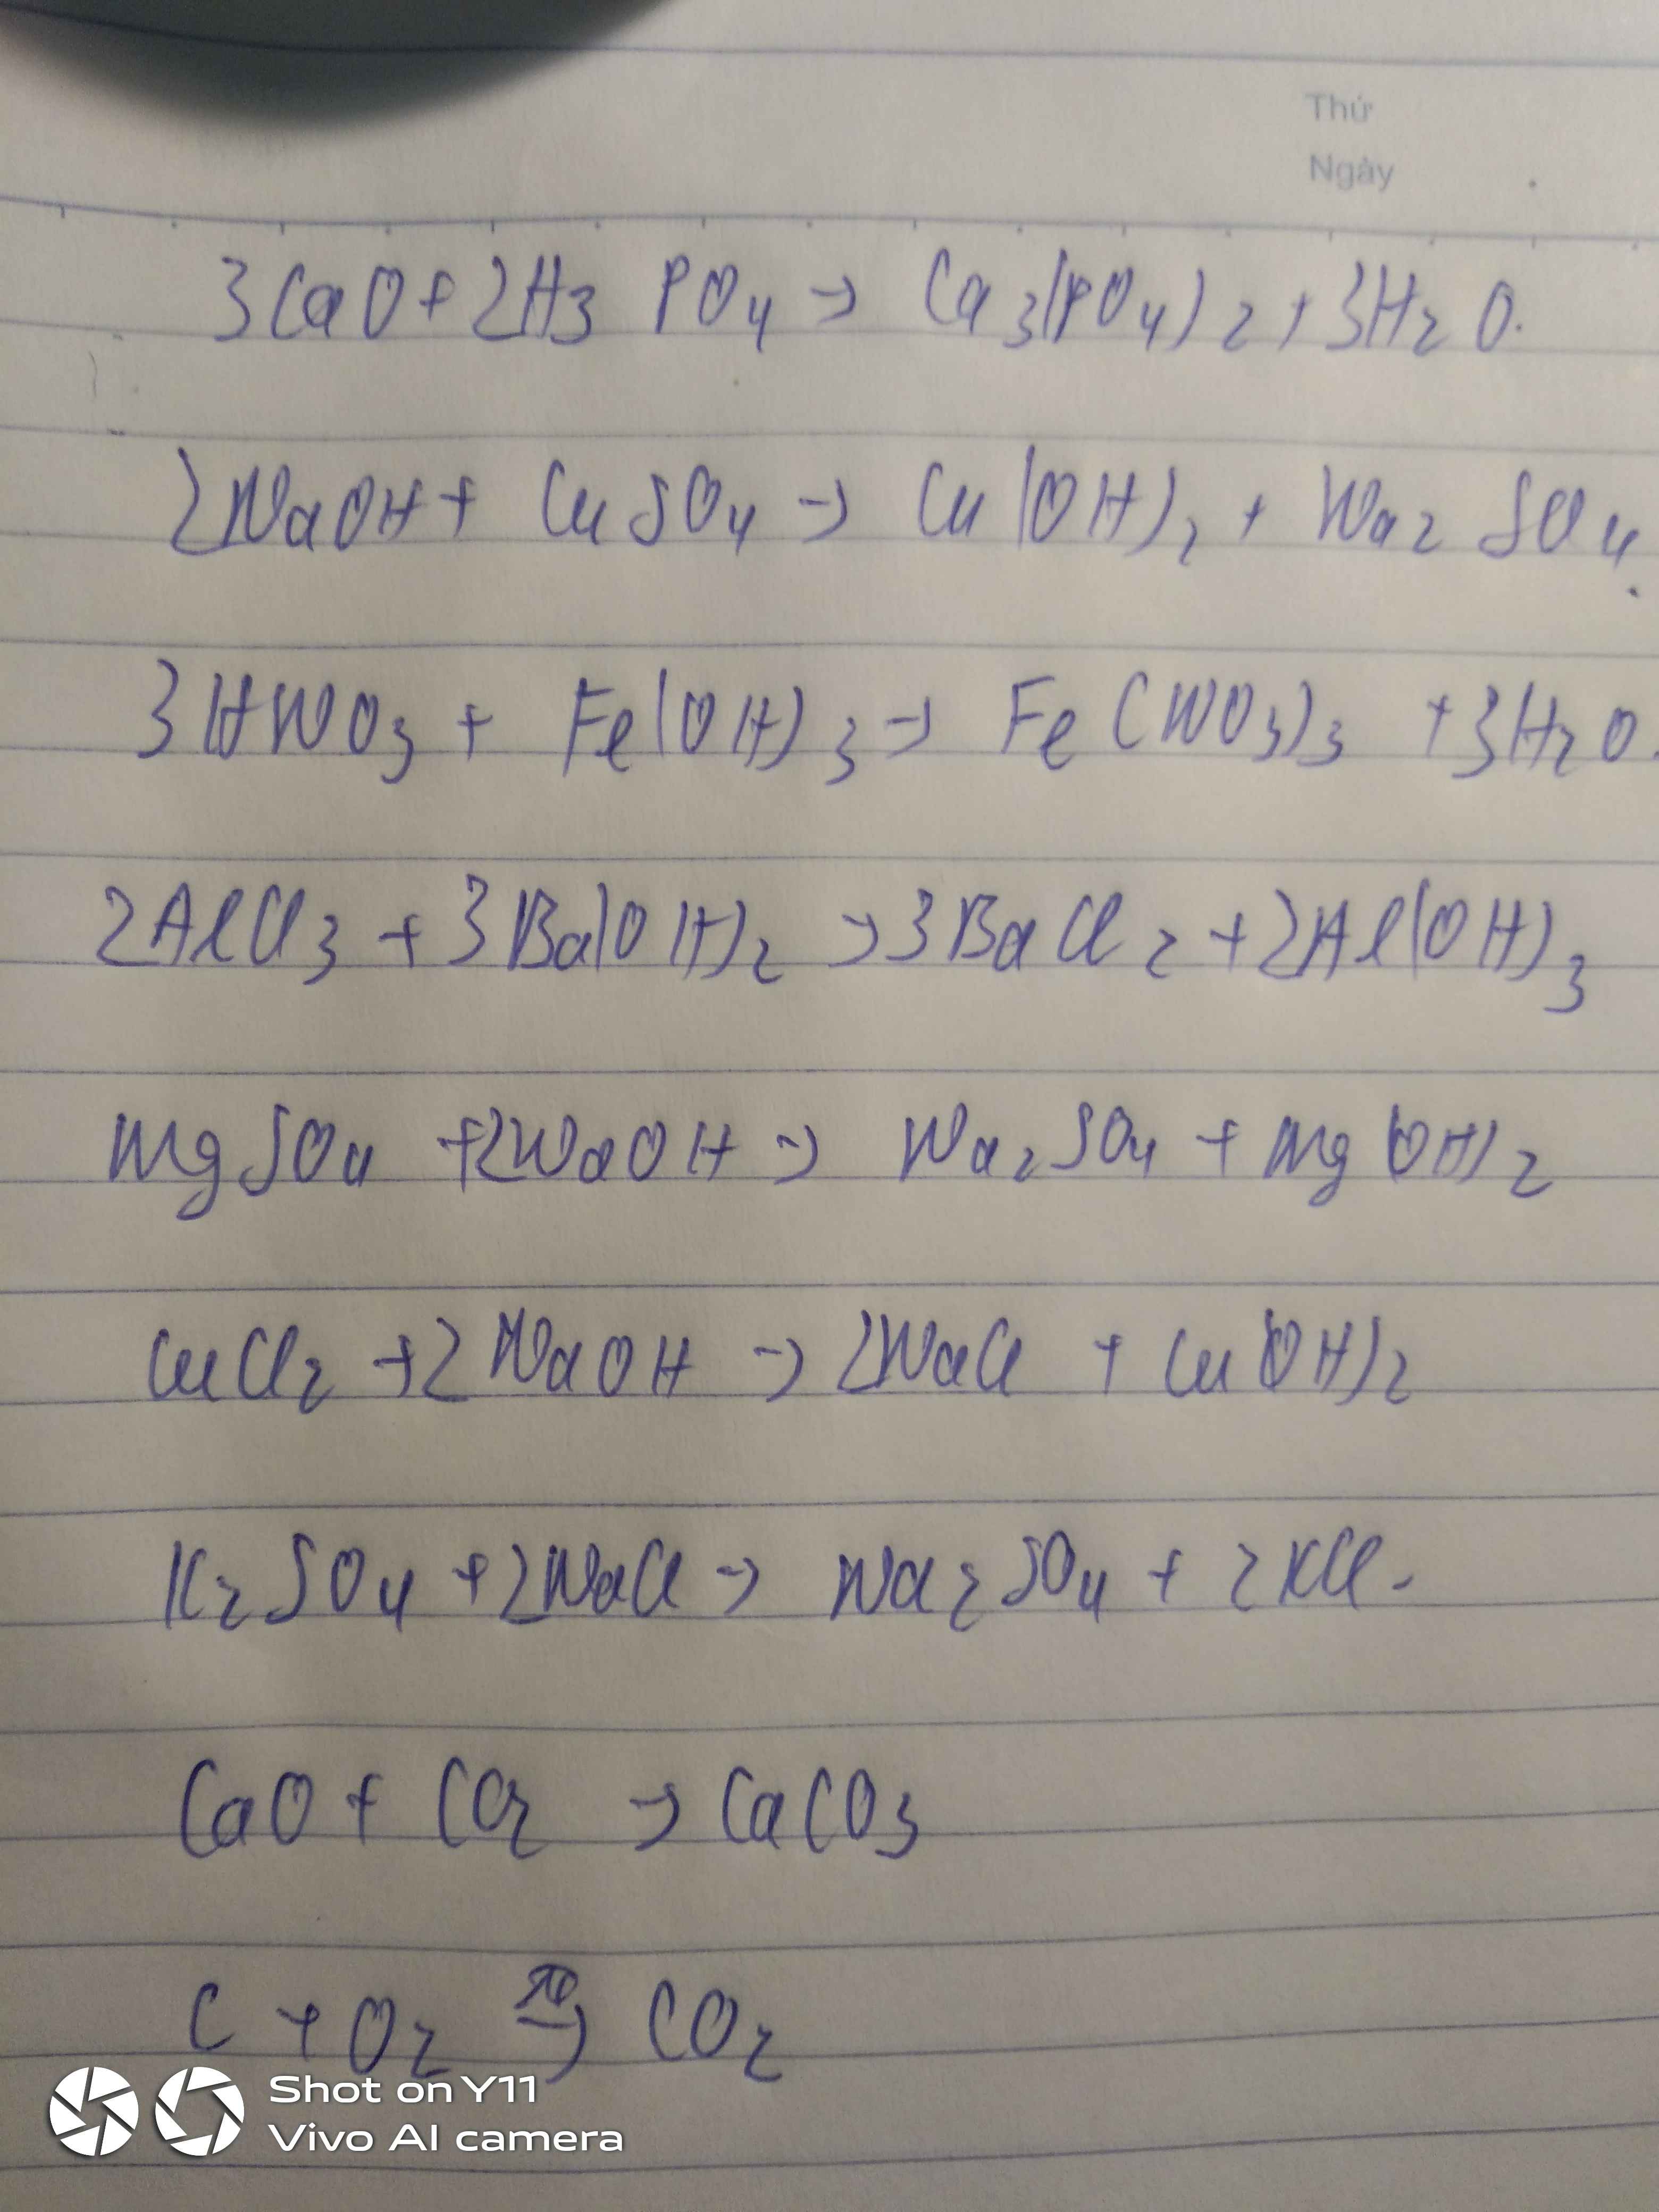 Thứ
Ngày
3CaO + 2H3PO4 → Ca3(PO4)2 + 3H2O.
2NaOH + CuSO4 → Cu(OH)2 + Na2SO4.
3HNO3 + Fe(OH)3 → Fe(NO3)3 + 3H2O.
2AlCl3 + 3Ba(OH)2 → 3BaCl2 + 2Al(OH)3
MgSO4 + 2NaOH → Na2SO4 + Mg(OH)2
CuCl2 + 2NaOH → 2NaCl + Cu(OH)2
K2SO4 + 2NaCl → Na2SO4 + 2KCl.
CaO + CO2 → CaCO3
C + O2 → CO2
Shot on Y11
Vivo AI camera